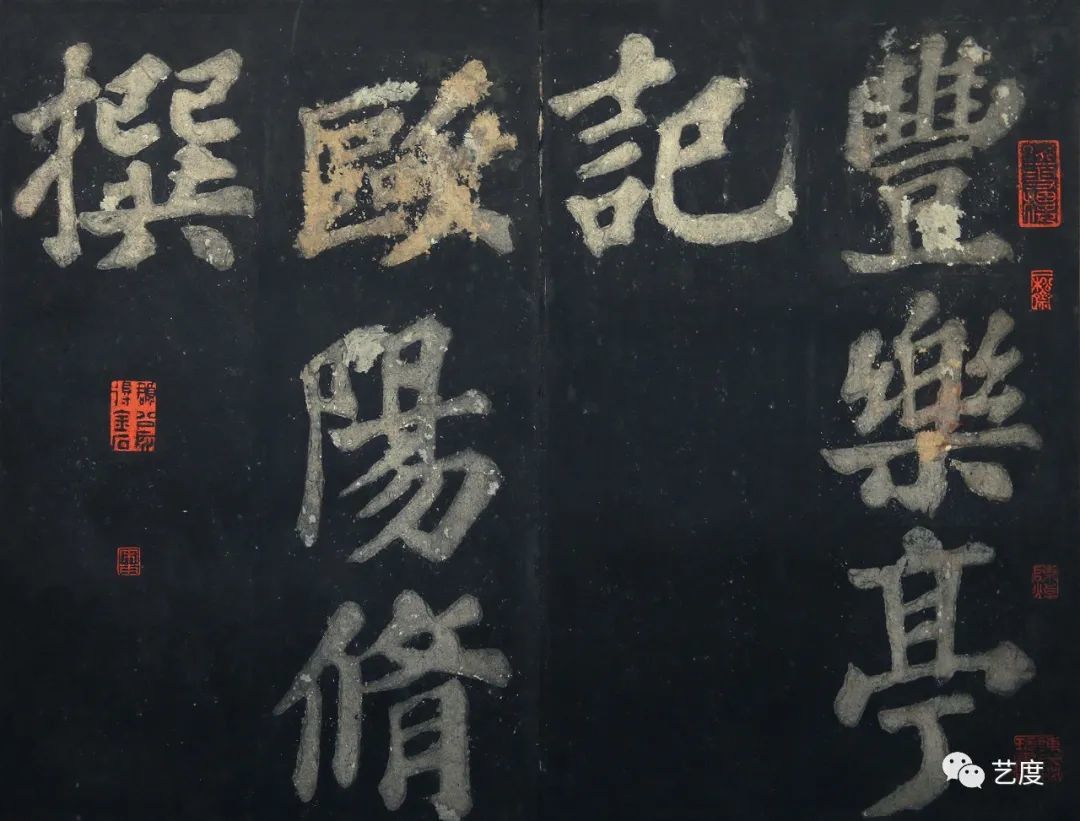 豐樂亭
記
歐陽脩
撰
艺度